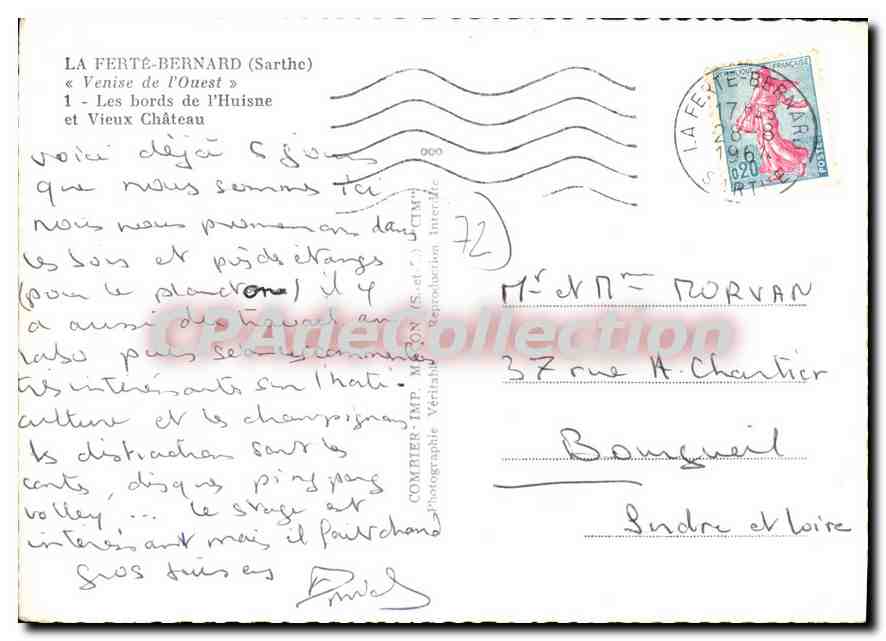 LA FERTÉ-BERNARD (Sarthe)
« Venise de l'Ouest »
1 - Les bords de l'Huisne
et Vieux Château
voici déjà 6 jours
que nous sommes ici
nous nous promenons dans
les bois et près des étangs
(pour le plancton) il y
a aussi des travaux en
labo puis sean
très intéressants sur l'hati-
culture et les champignons
les distractions sont les
cartes, disques, ping pong
volley... le stage est
intéressant mais il fait chaud
gros bises
000
72
COMBIER-IMP. MACON (S.-et-L.) "CIM"
Photographie Véritable Reproduction Interdite
LA FERTE-BERNARD
17 H
28-8
196
SARTHE
REPUBLIQUE FRANÇAISE
0,20
POSTES
Mr et Mme MORVAN
37 rue A. Chartier
Bourgueil
Indre et Loire
CPArteCollection